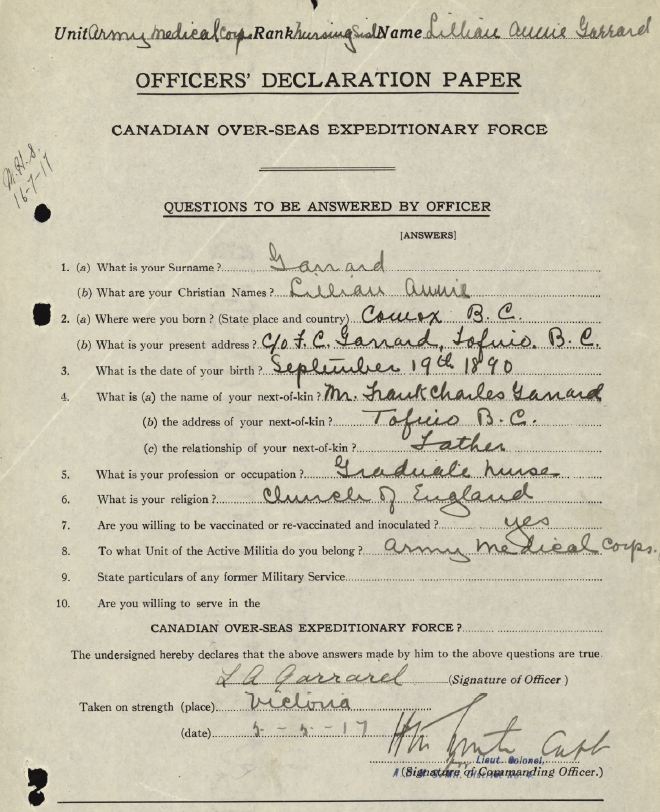 Unit Army Medical Corps Rank Nursing Sist Name Lillian Annie Garrard
OFFICERS' DECLARATION PAPER
CANADIAN OVER-SEAS EXPEDITIONARY FORCE
M.H.S.
16-7-17
QUESTIONS TO BE ANSWERED BY OFFICER
[ANSWERS]
1. (a) What is your Surname? Garrard
(b) What are your Christian Names? Lillian Annie
2. (a) Where were you born? (State place and country) Comox B.C.
(b) What is your present address? C/o F. C. Garrard, Tofino. B.C.
3. What is the date of your birth? September 19th 1890
4. What is (a) the name of your next-of-kin? Mr. Frank Charles Garrard
(b) the address of your next-of-kin? Tofino B.C.
(c) the relationship of your next-of-kin? Father
5. What is your profession or occupation? Graduate nurse
6. What is your religion? Church of England
7. Are you willing to be vaccinated or re-vaccinated and inoculated? yes
8. To what Unit of the Active Militia do you belong? Army Medical Corps.
9. State particulars of any former Military Service
10. Are you willing to serve in the
CANADIAN OVER-SEAS EXPEDITIONARY FORCE?
The undersigned hereby declares that the above answers made by him to the above questions are true.
L A Garrard (Signature of Officer)
Taken on strength (place) Victoria
(date) 5-5-17
Capt
Lieut Colonel,
(Signature of Commanding Officer.)